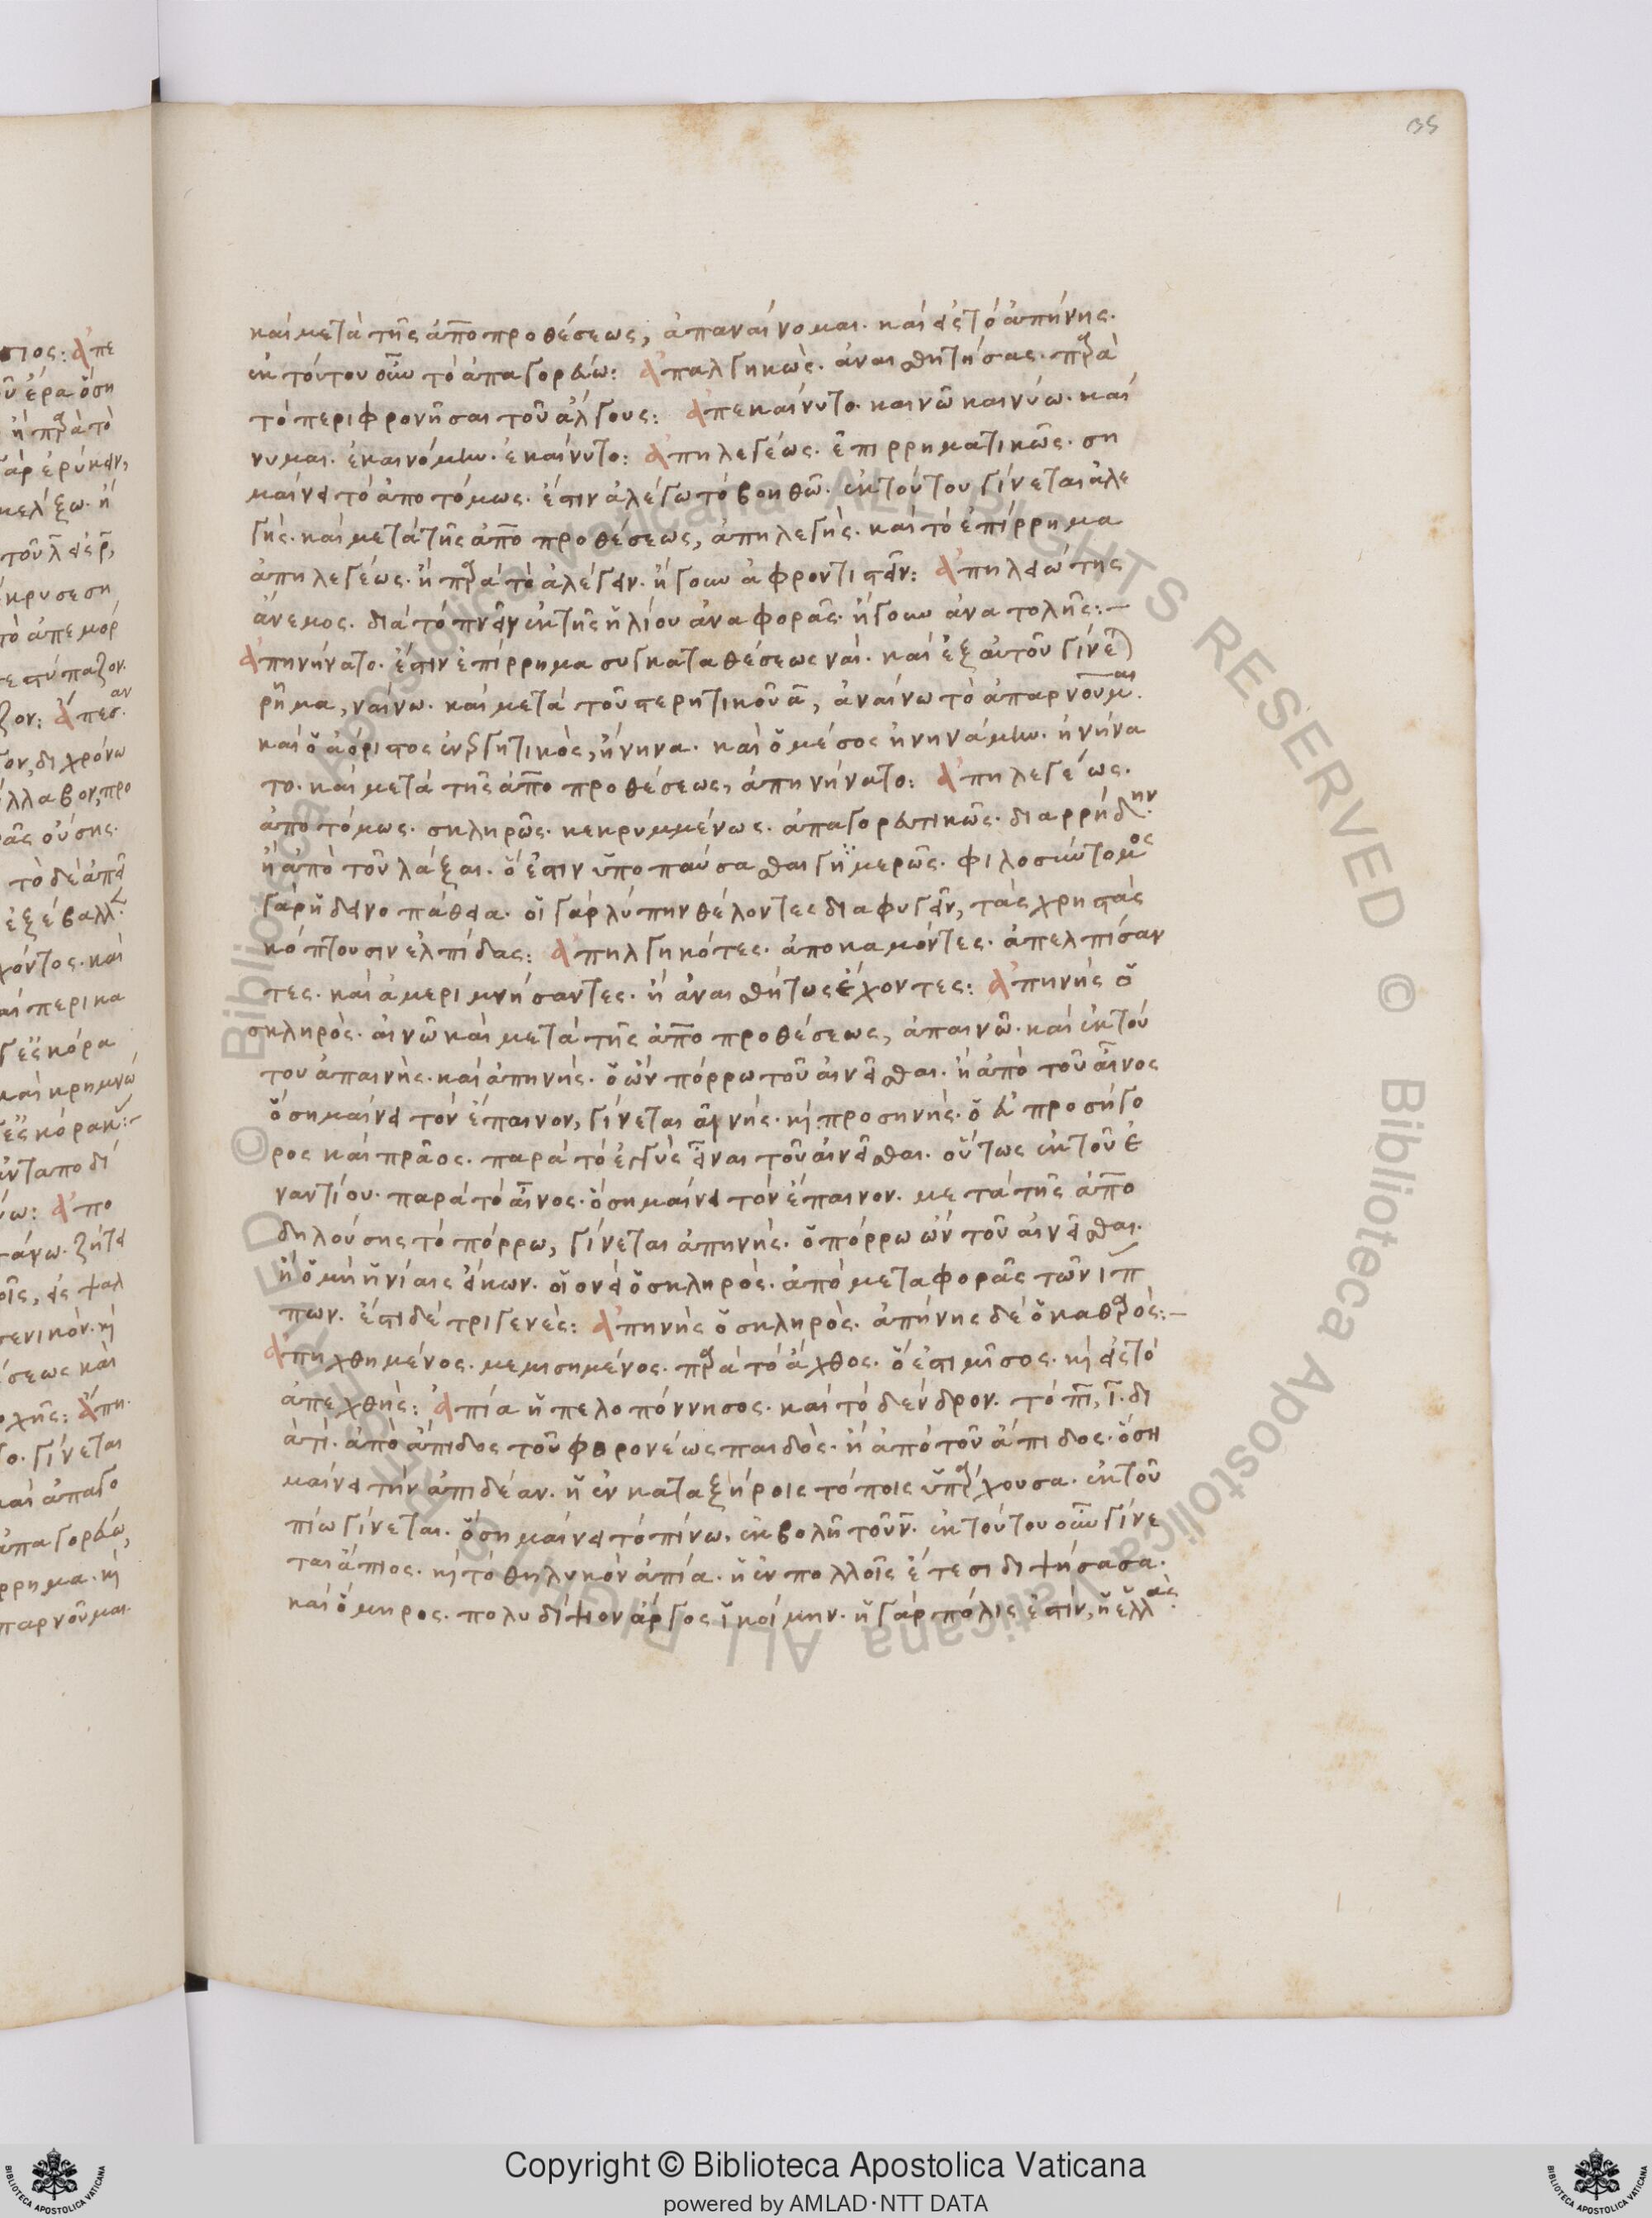 35
καὶ μετὰ τῆς ἀπὸ προθέσεως, ἀπαναίνομαι. καὶ εἰς τὸ ἀπήνης.
ἐκ τούτου οὖν τὸ ἀπαγορεύω: Ἀπαλγηκὼς. ἀναισθητήσας. παρὰ
τὸ περιφρονῆσαι τοῦ ἄλγους: Ἀπεκαίνυτο. καινῶ καινύω. καί
νυμαι. ἐκαινόμην. ἐκαίνυτο: Ἀπηλεγέως. ἐπιρρηματικῶς. ση
μαίνει τὸ ἀποτόμως. ἔστιν ἀλέγω τὸ βοηθῶ. ἐκ τούτου γίνεται ἀλε
γής. καὶ μετὰ τῆς ἀπὸ προθέσεως, ἀπηλεγής. καὶ τὸ ἐπίρρημα
ἀπηλεγέως. ἢ παρὰ τὸ ἀλέγειν. ἤγουν ἀφροντιστεῖν: Ἀπηλιώτης
ἄνεμος. διὰ τὸ πνεῖν ἐκ τῆς ἡλίου ἀναφορᾶς. ἤγουν ἀνατολῆς:–
Ἀπηνήνατο. ἔστιν ἐπίρρημα συγκαταθέσεως ναί. καὶ ἐξ αὐτοῦ γίνεται
ῥῆμα, ναίνω. καὶ μετὰ τοῦ στερητικοῦ α, ἀναίνω τὸ ἀπαρνοῦμαι.
καὶ ὁ ἀόριστος ἐνεργητικὸς, ἤνηνα. καὶ ὁ μέσος ἠνηνάμην. ἠνήνα
το. καὶ μετὰ τῆς ἀπὸ προθέσεως, ἀπηνήνατο: Ἀπηλεγέως.
ἀποτόμως. σκληρῶς. κεκρυμμένως. ἀπαγορευτικῶς. διαρρήδην.
ἢ ἀπὸ τοῦ λάξαι. ὅ ἐστιν ὑποπαύσασθαι γημερῶς. φιλοσκώτομος
γὰρ ἡδεινοπάθεια. οἱ γὰρ λύπην θέλοντες διαφυγεῖν, τὰς χρηστὰς
κόπτουσιν ἐλπίδας: Ἀπηλγηκότες. ἀποκαμόντες. ἀπελπίσαν
τες. καὶ ἀμεριμνήσαντες. ἢ ἀναισθήτως ἔχοντες: Ἀπηνής ὁ
σκληρὸς. αἰνῶ καὶ μετὰ τῆς ἀπὸ προθέσεως, ἀπαινῶ. καὶ ἐκ τού
του ἀπαινὴς. καὶ ἀπηνής. ὁ ὢν πόρρω τοῦ αἰνεῖσθαι. ἢ ἀπὸ τοῦ αἶνος
ὃ σημαίνει τὸν ἔπαινον, γίνεται αἰνής. καὶ προσηνής. ὁ εὐπροσήγο
ρος καὶ πρᾶος. παρὰ τὸ ἐγγὺς εἶναι τοῦ αἰνεῖσθαι. οὕτως ἐκ τοῦ ἐ
ναντίου. παρὰ τὸ αἶνος. ὃ σημαίνει τὸν ἔπαινον. μετὰ τῆς ἀπὸ
δηλούσης τὸ πόρρω, γίνεται ἀπηνής. ὁ πόρρω ὢν τοῦ αἰνεῖσθαι.
ἢ ὁ μὴ ἡνίαις εἴκων. οἱονεὶ ὁ σκληρὸς. ἀπὸ μεταφορᾶς τῶν ἵπ
πων. ἔστι δὲ τριγενές: Ἀπηνὴς ὁ σκληρὸς. ἀπήνης δὲ ὁ καθαρὸς:–
Ἀπηχθημένος. μεμισημένος. παρὰ τὸ ἄχθος. ὅ ἐστι μῖσος. καὶ εἰς τὸ
ἀπεχθής: Ἀπία ἡ πελοπόννησος. καὶ τὸ δένδρον. τὸ πι, ι. δι
ὰ τί. ἀπὸ ἄπιδος τοῦ φορονέως παιδὸς. ἢ ἀπὸ τοῦ ἄπιδος. ὃ ση
μαίνει τὴν ἀπιδέαν. ἡ ἐν καταξήροις τόποις ὑπάρχουσα. ἐκ τοῦ
πίω γίνεται. ὃ σημαίνει τὸ πίνω. ἐκβολῇ τοῦ ν. ἐκ τούτου οὖν γίνε
ται ἄπιος. καὶ τὸ θηλυκὸν ἀπία. ἡ ἐν πολλοῖς ἔτεσι διψήσασα.
καὶ ὅμηρος. πολυδίψιον ἄργος ἱκοίμην. ἡ γὰρ πόλις ἐστίν, ἡ ἑλλὰς.
Copyright © Biblioteca Apostolica Vaticana
powered by AMLAD·NTT DATA